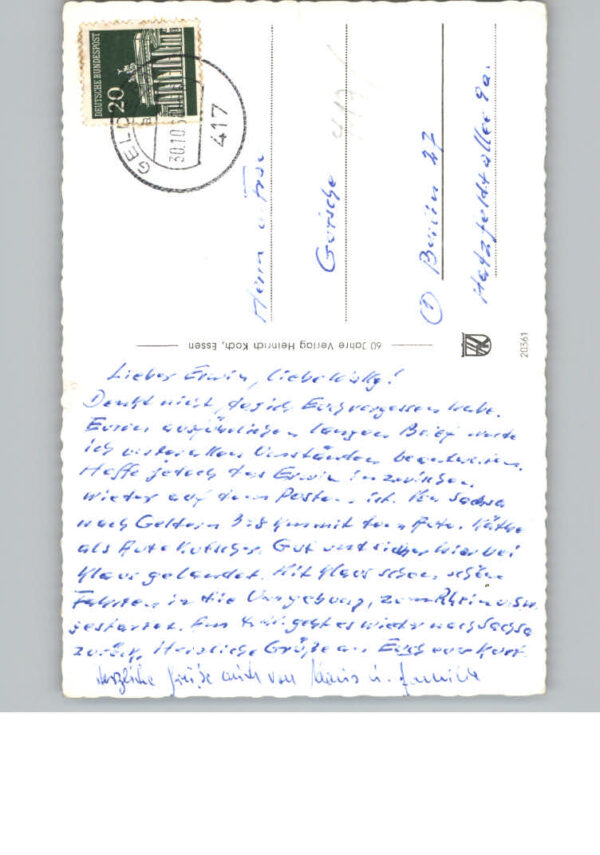 DEUTSCHE BUNDESPOST
20
GELD
30.10.
417
Herrn u Frau
Gorische
① Berlin 27
Hatzfeldtallee 9a.
60 Jahre Verlag Heinrich Koch, Essen
20361
Lieber Erwin, liebe
Denkt nicht, das ich Euch vergessen habe.
Euren ausführlichen langen Brief werde
ich unter allen Umständen beantworten.
Hoffe jedoch das Erwin inzwischen
wieder auf dem Posten ist. Von Sachsa
nach Geldern 328 km mit dem Auto. Käthe
als Auto Kutscher. Gut und sicher hier bei
Klaus gelandet. Mit Klaus schon schöne
Fahrten in die Umgebung, zum Rhein u.s.w.
gestartet. Am geht es wieder nach Sachsa
zurück. Herzliche Grüße an Euch euer Kurt.
Herzliche Grüße auch von Klaus u. Familie